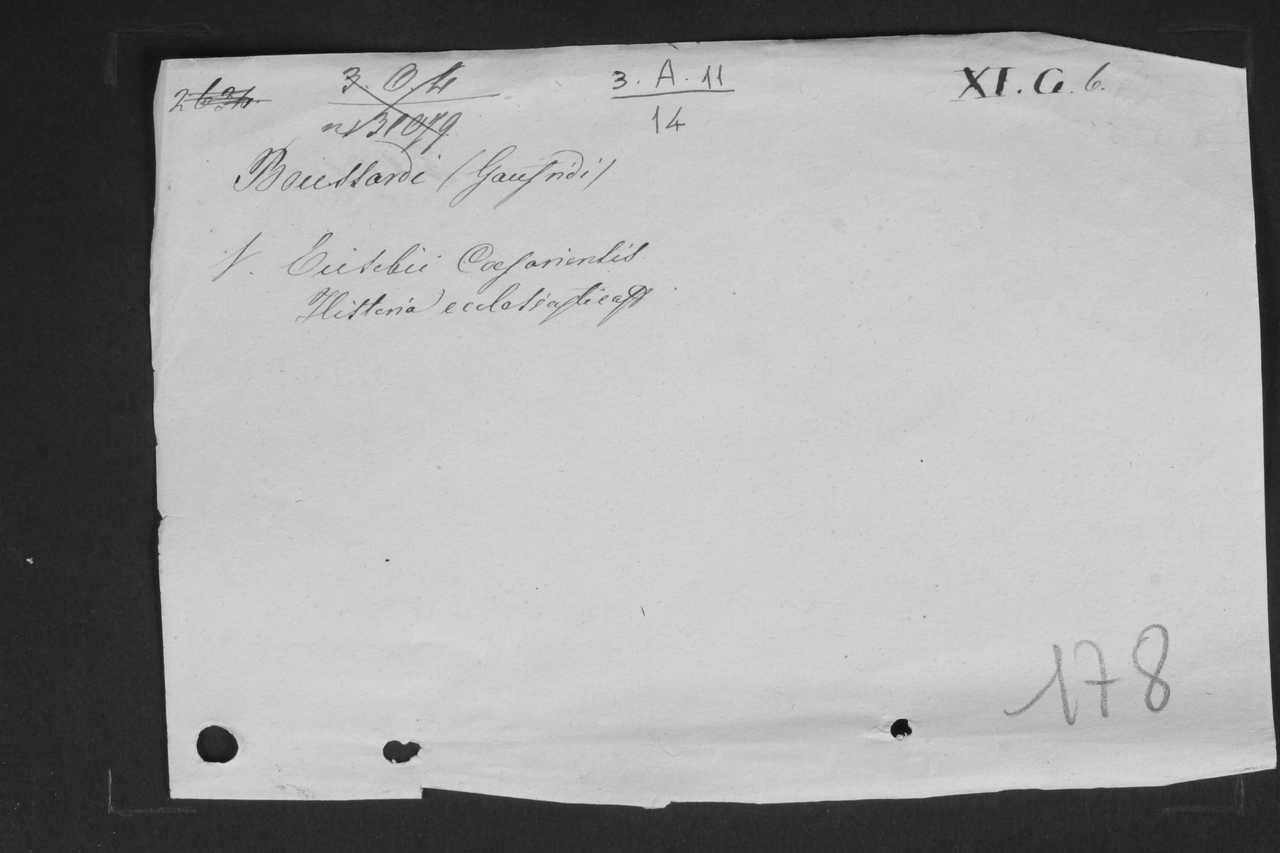 2634 3. O. 4 3. A. 11 XI. G. 6.
14
Boussardi (Gaufridi)
V. Eusebii Caesariensis
Historia ecclesiastica
178